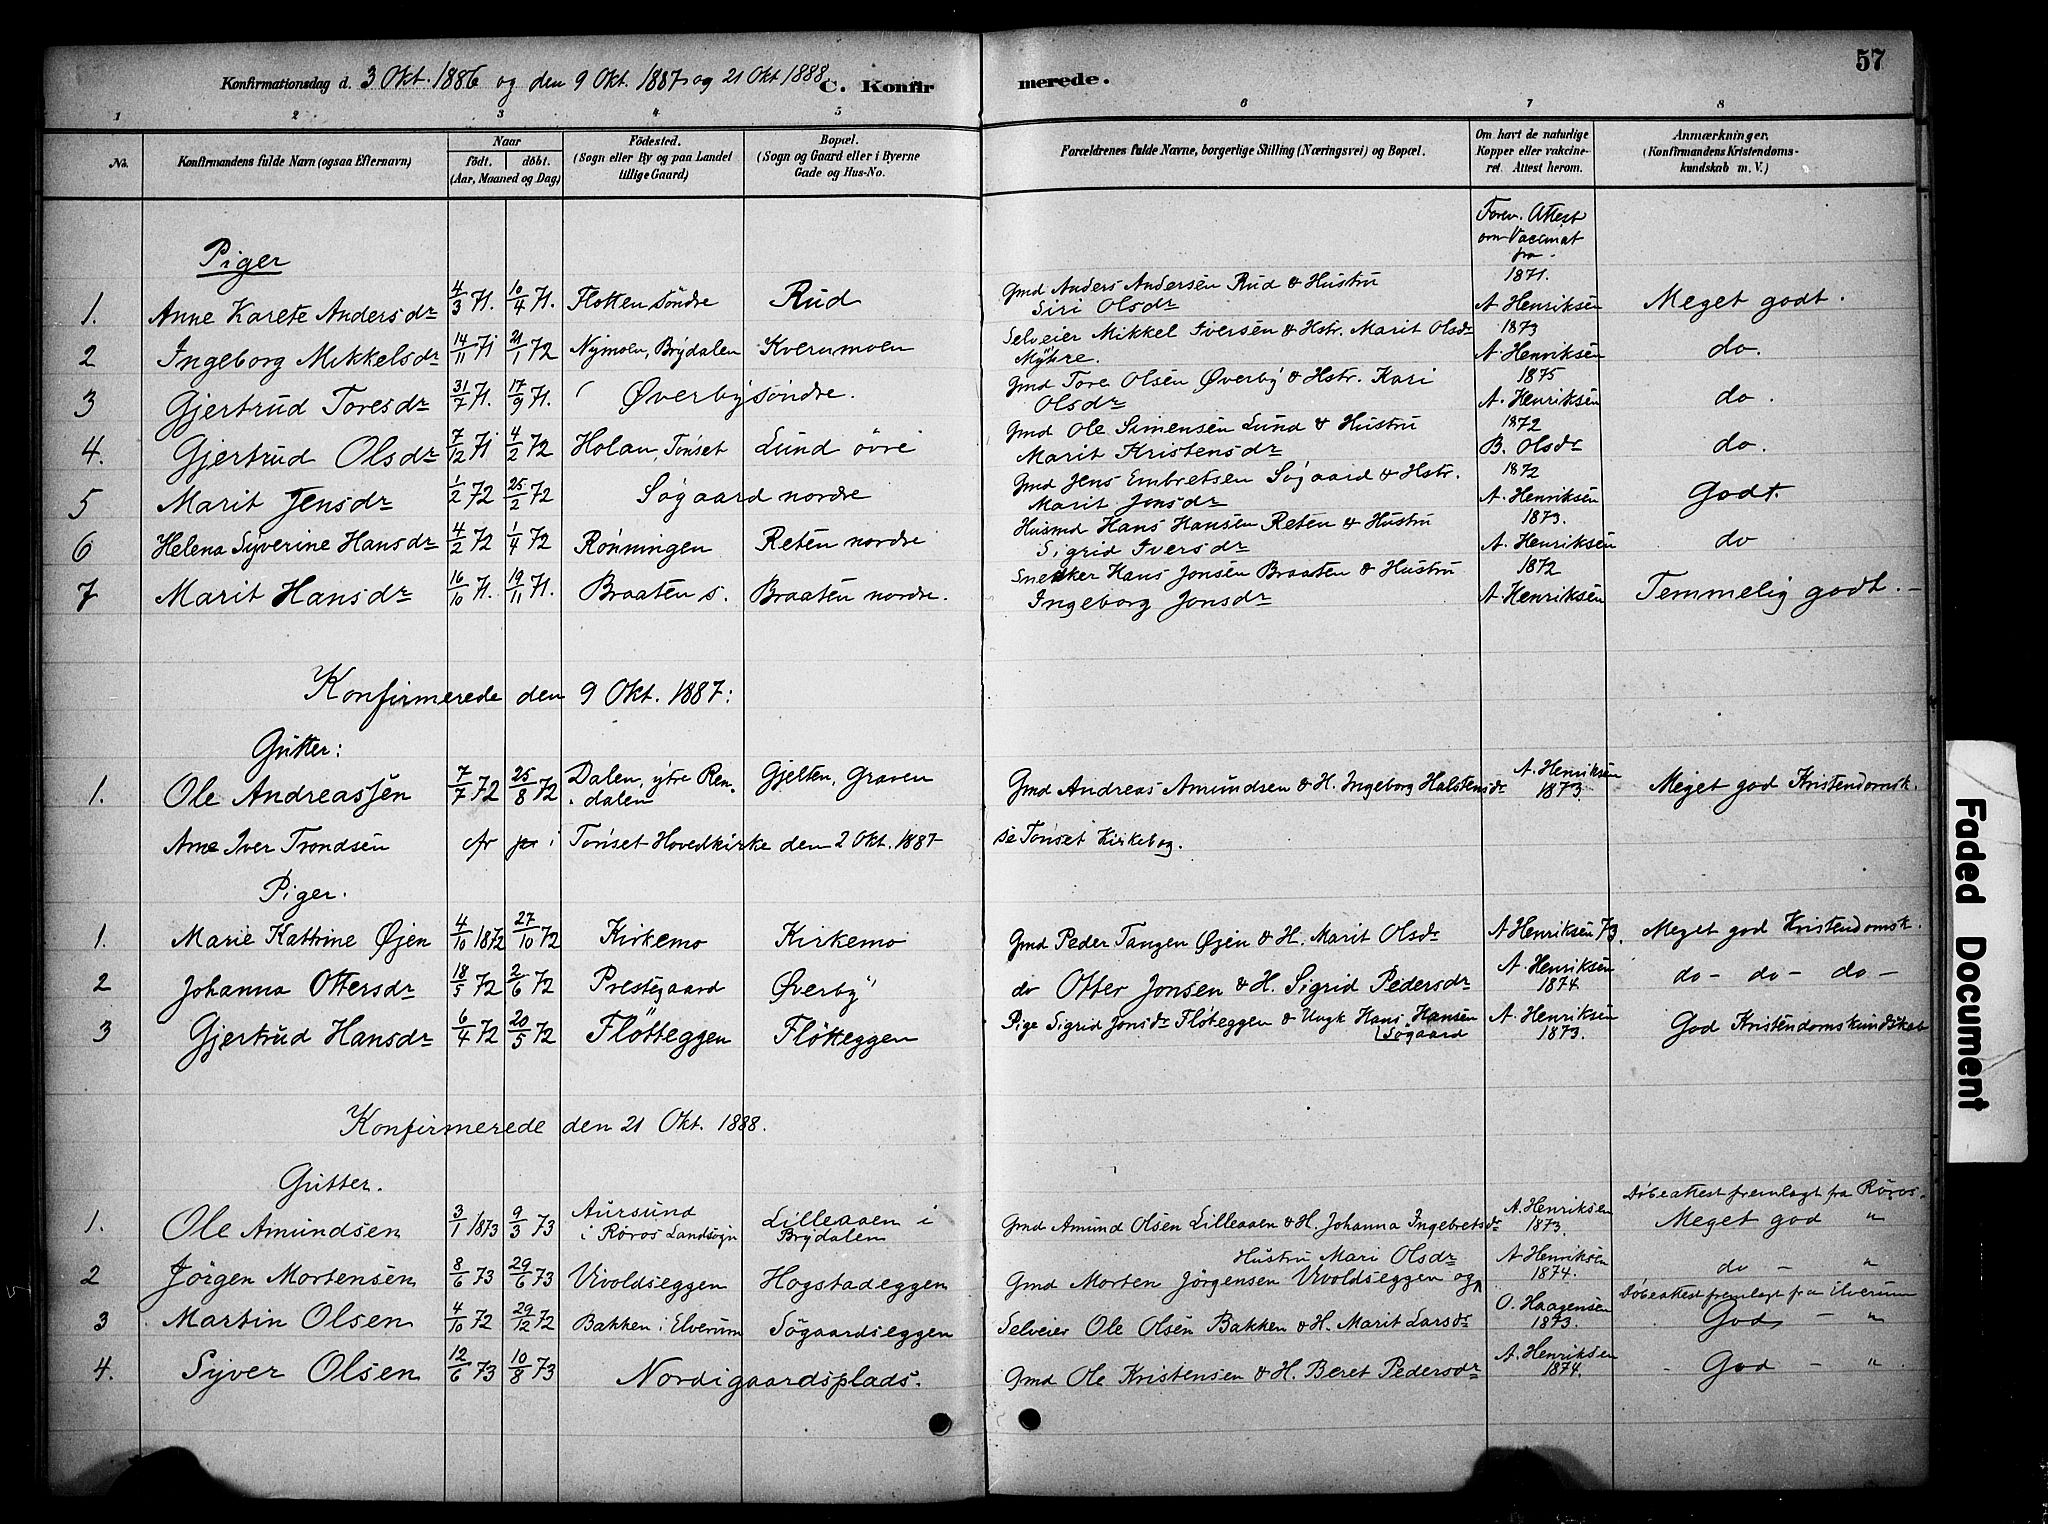 57
Konfirmationsdag d. 3 Okt. 1886 og den 9 Okt. 1887 og 21 Okt 1888 C. Konfirmerede.
1 2 3 4 5 6 7 8
No. Konfirmandens fulde Navn (ogsaa Efternavn) Naar født. døbt. (Aar, Maaned og Dag) Födested. (Sogn eller By og paa Landet tillige Gaard) Bopæl. (Sogn og Gaard eller i Byerne Gade og Hus-No. Forældrenes fulde Navne, borgerlige Stilling (Næringsvei) og Bopæl. Om havt de naturlige Kopper eller vakcineret. Attest herom. Anmærkninger. (Konfirmandens Kristendomskundskab m. V.)
Forev. Attest om Vaccinat fra
Piger
1. Anne Karete Andersdr 4/3 71. 10/4 71. Flotten söndre Rud Gmd Anders Andersen Rud & Hustru Siri Olsdr 1871. A. Henriksen Meget godt.
2 Ingeborg Mikkelsdr 14/11 71 21/1 72 Nymoen, Brydalen Kvernmoen Selveier Mikkel Iversen & Hstr. Marit Olsdr Myhre. 1873 A. Henriksen do.
3 Gjertrud Toresdr 31/7 71. 17/9 71. Øverby söndre. Gmd Tore Olsen Øverby & Hstr. Kari Olsdr 1875 A. Henriksen do.
4. Gjertrud Olsdr 7/12 71 4/2 72 Holan, Tönset Lund övre Gmd Ole Simensen Lund & Hustru Marit Kristensdr 1872 B. Olsdr do.
5 Marit Jensdr 1/2 72 25/2 72 Søgaard nordre Gmd Jens Embretsen Søgaard & Hstr. Marit Jonsdr 1872 A. Henriksen Godt.
6 Helena Syverine Hansdr 4/2 72 1/4 72 Rönningen Reten nordre Husmd Hans Hansen Reten & Hustru Sigrid Iversdr 1873. A. Henriksen do
7 Marit Hansdr 16/10 71. 19/11 71. Braaten s. Braaten nordre. Snekker Hans Jonsen Braaten & Hustru Ingeborg Jonsdr 1872 A. Henriksen Temmelig godt. -
Konfirmerede den 9 Okt. 1887:
Gutter:
1. Ole Andreassen 7/7 72 25/8 72 Dalen, ytre Rendalen Gjelten, Graven Gmd Andreas Amundsen & H. Ingeborg Halstensdr A. Henriksen 1873. Meget god Kristendomsk.
Arne Iver Trondsen cfr i Tönset Hovedkirke den 2 Okt. 1887 se Tönset Kirkebog.
Piger.
1. Marie Kathrine Øjen 4/10 1872 27/10 72 Kirkemo Kirkemo Gmd Peder Tangen Øjen & H. Marit Olsdr A Henriksen 73. Meget god Kristendomsk.
2 Johanna Ottersdr 18/5 72 2/6 72 Prestegaard Øverby do Otter Jonsen & H. Sigrid Pedersdr A. Henriksen 1874 do - do - do -
3 Gjertrud Hansdr 6/4 72 20/5 72 Fløtteggen Fløtteggen Pige Sigrid Jonsdr Fløteggen & Ungk Hans Hansen Søgaard A. Henriksen 1873. God Kristendomskundskab
Konfirmerede den 21 Okt. 1888.
Gutter.
1. Ole Amundsen 3/1 1873 9/3 73 Aursund i Røros Landsogn Lilleaaen i Brydalen Gmd Amund Olsen Lilleaaen & H. Johanna Ingebretsdr A. Henriksen 1873. Døbeattest fremlagt fra Røros. Meget god "
2 Jörgen Mortensen 8/6 73 29/6 73 Vivoldseggen Hogstadeggen Gmd Morten Jörgensen Vivoldseggen og Hustru Mari Olsdr A. Henriksen 1874. do - "
3 Martin Olsen 4/10 72 29/12 72 Bakken i Elverum Søgaardseggen Selveier Ole Olsen Bakken & H. Marit Larsdr O. Haagensen 1873. Døbeattest fremlagt fra Elverum God - "
4. Syver Olsen 12/6 73 10/8 73 Nordigaardsplads. Gmd Ole Kristensen & H. Beret Pedersdr A. Henriksen 1874. - God - "
Faded Document